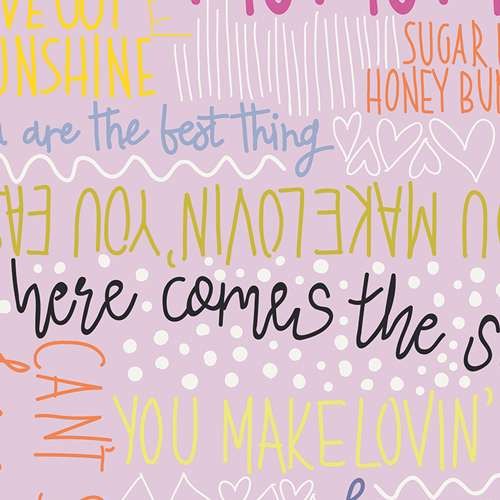 VE OUT
UNSHINE
SUGAR
HONEY BUN
u are the best thing
OU MAKE LOVIN' YOU EAS
here comes the s
CAN'T
YOU MAKE LOVIN'